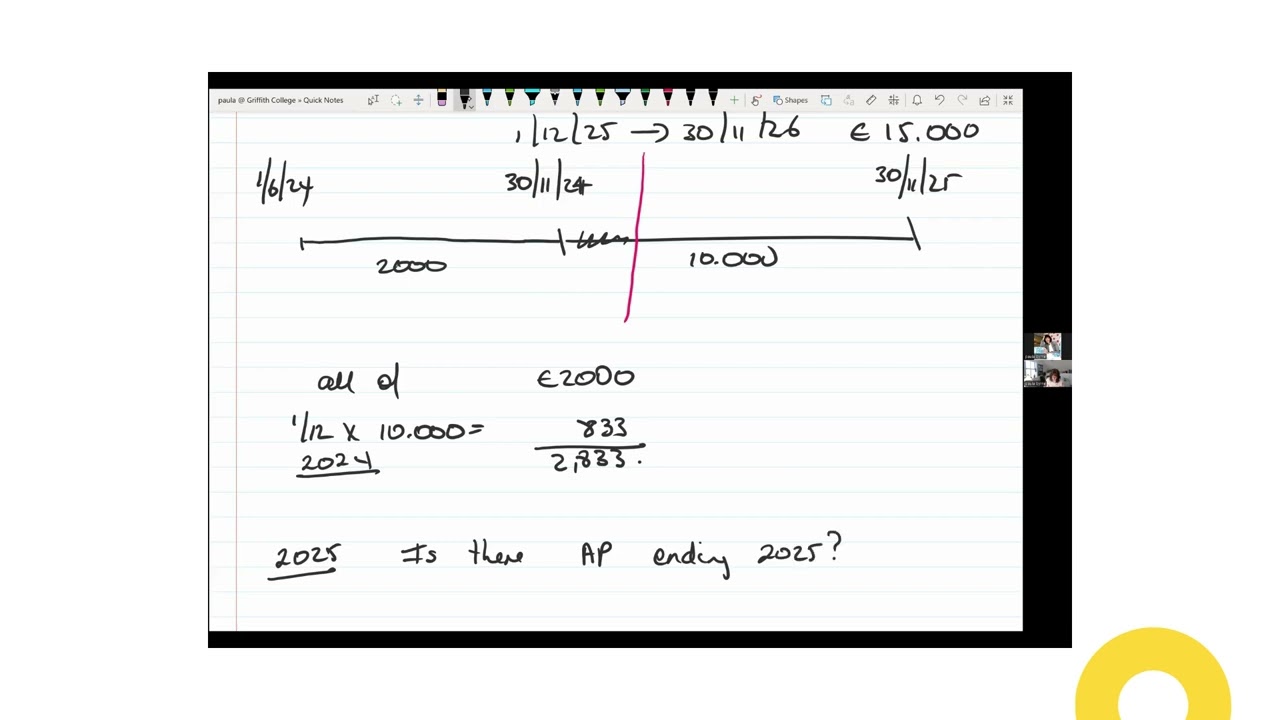 paula @ Griffith College » Quick Notes
Shapes
1/12/25 → 30/11/26 € 15.000
1/6/24 30/11/24 30/11/25
2000 10.000
all of €2000
1/12 x 10.000= 833
2024 2,833.
2025 Is there AP ending 2025?